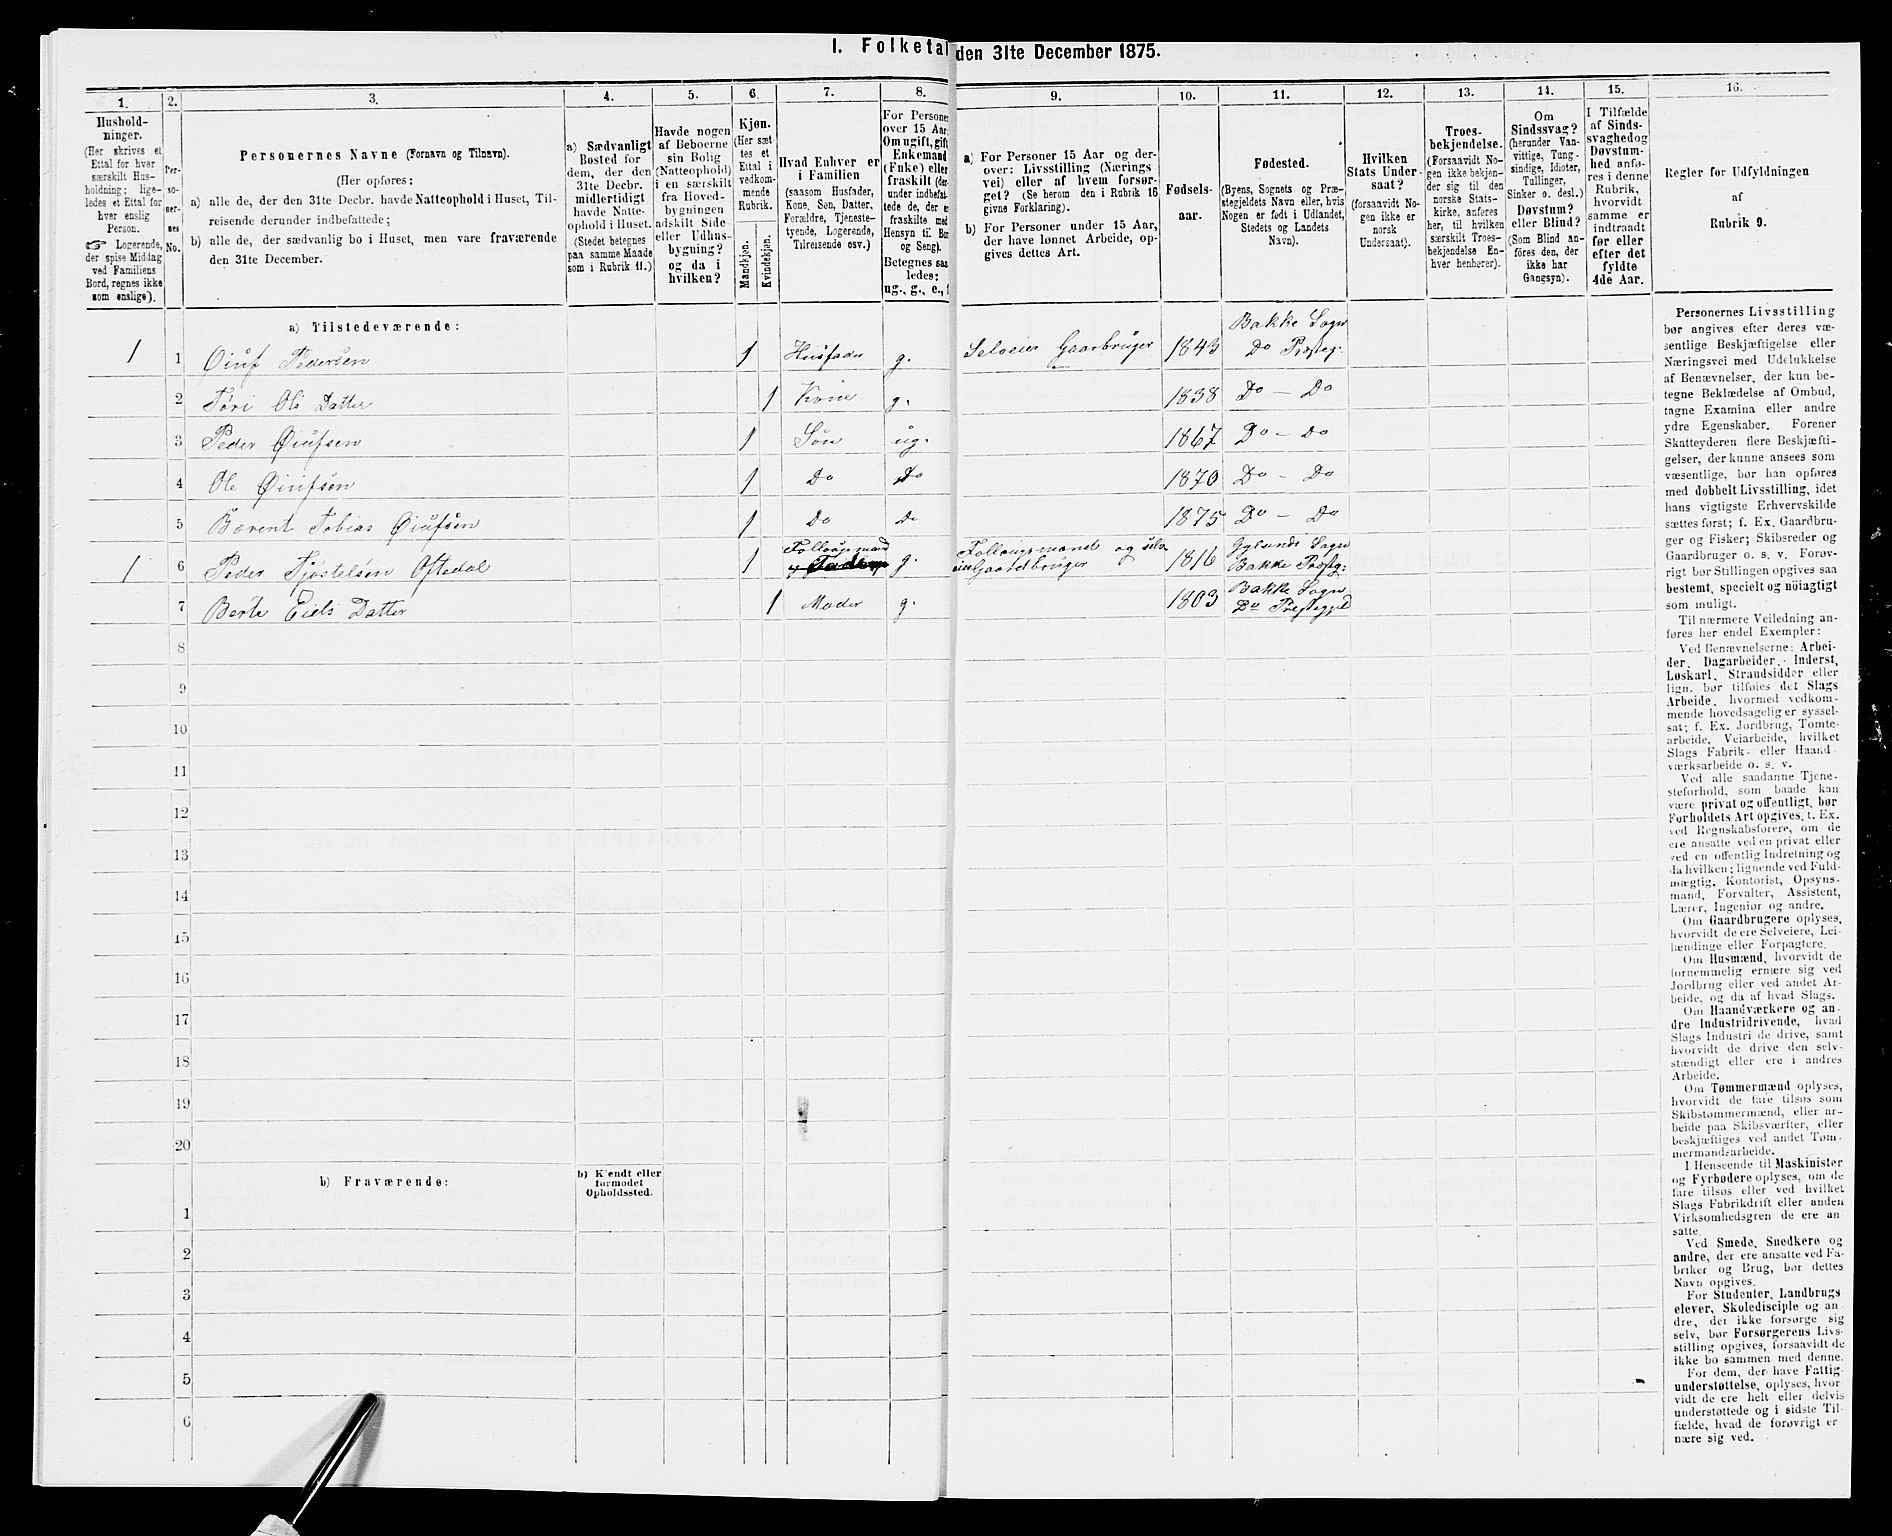 I. Folketal den 31te December 1875.
1. 2. 3. 4. 5. 6. 7. 8. 9. 10. 11. 12. 13. 14. 15. 16.
Hushold-
ninger.
(Her skrives et
Ettal for hver
særskilt Hus-
holdning; lige-
ledes et Ettal for
hver enslig
Person.
☞ Logerende,
der spise Middag
ved Familiens
Bord, regnes ikke
som enslige).
Per-
so-
ner-
nes
No.
Personernes Navne (Fornavn og Tilnavn).
(Her opføres:
a) alle de, der den 31te Decbr. havde Natteophold i Huset, Til-
reisende derunder indbefattede;
b) alle de, der sædvanlig bo i Huset, men vare fraværende
den 31te December.
a) Sædvanligt
Bosted for
dem, der den
31te Decbr.
midlertidigt
havde Natte-
ophold i Huset.
(Stedet betegnes
paa samme Maade
som i Rubrik 11.)
Havde nogen
af Beboerne
sin Bolig
(Natteophold)
i en særskilt
fra Hoved-
bygningen
adskilt Side
eller Udhus-
bygning?
og da i
hvilken?
Kjøn.
(Her sæt-
tes et
Ettal i
vedkom-
mende
Rubrik.
Mandkjøn.
Kvindekjøn.
Hvad Enhver er
i Familien
(saasom Husfader,
Kone, Søn, Datter,
Forældre, Tjeneste-
tyende, Logerende,
Tilreisende osv.)
For Persone
over 15 Aar:
Om ugift, gift
Enkemand
(Enke) eller
fraskilt (der-
under indbefat-
tede de, der ere
fraskilte med
Hensyn til Bo
og Seng).
Betegnes saa-
ledes:
ug., g., e., f
a) For Personer 15 Aar og der-
over: Livsstilling (Nærings
vei) eller af hvem forsør-
get? (Se herom den i Rubrik 16
givne Forklaring).
b) For Personer under 15 Aar,
der have lønnet Arbeide, op-
gives dettes Art.
Fødsels-
aar.
Fødested.
(Byens, Sognets og Præ-
stegjeldets Navn eller, hvis
Nogen er født i Udlandet,
Stedets og Landets
Navn).
Hvilken
Stats Under-
saat?
(forsaavidt No-
gen ikke er
norsk
Undersaat).
Troes-
bekjendelse.
(Forsaavidt No-
gen ikke bekjen-
der sig til den
norske Stats-
kirke, anføres
her, til hvilken
særskilt Troes-
bekjendelse En-
hver henhører).
Om
Sindssvag?
(herunder Van-
vittige, Tung-
sindige, Idioter,
Tullinger,
Sinker o. desl.).
Døvstum?
eller Blind?
(Som Blind an-
føres den, der
ikke har
Gangsyn).
I Tilfælde
af Sinds-
svaghed og
Døvstum-
hed anfø-
res i denne
Rubrik,
hvorvidt
samme er
indtraadt
før eller
efter det
fyldte
4de Aar.
Regler for Udfyldningen
af
Rubrik 9.
a) Tilstedeværende:
1 1 Øiuf Pedersen 1 Husfader g. Selveier Gaarbruger 1843 Bakke Sogn
Do Prosteg:
2 Tøri Ole Datter 1 Kone g. 1838 Do — Do
3 Peder Øiufsen 1 Søn ug. 1867 Do — Do
4 Ole Øiufsen 1 Do Do 1870 Do — Do
5 Bærent Tobias Øiufsen 1 Do Do 1875 Do — Do
1 6 Peder Tjøstelsen Oftedal 1 Follougsmand g. Follougsmand og selv
eier Gaardbruger 1816 Gylands Sogn
Bakke Prosteg:
7 Berte Eiels Datter 1 Moder g. 1803 Bakke Sogn
Do Prestegjeld
8
9
10
11
12
13
14
15
16
17
18
19
20
b) Fraværende:
b) Kjendt eller
formodet
Opholdssted.
1
2
3
4
5
6
Personernes Livsstilling
bør angives efter deres væ-
sentlige Beskjæftigelse eller
Næringsvei med Udelukkelse
af Benævnelser, der kun be-
tegne Beklædelse af Ombud,
tagne Examina eller andre
ydre Egenskaber. Forener
Skatteyderen flere Beskjæfti-
gelser, der kunne ansees som
væsentlige, bør han opføres
med dobbelt Livsstilling, idet
hans vigtigste Erhvervskilde
sættes først; f. Ex. Gaardbru-
ger og Fisker; Skibsreder og
Gaardbruger o. s. v. Forøv-
rigt bør Stillingen opgives saa
bestemt, specielt og nöiagtigt
som muligt.
Til nærmere Veiledning an-
føres her endel Exempler:
Ved Benævnelserne: Arbei-
der, Dagarbeider, Inderst,
Løskarl, Strandsidder eller
lign. bør tilføies det Slags
Arbeide, hvormed vedkom-
mende hovedsagelig er syssel-
sat; f. Ex. Jordbrug, Tomte-
arbeide, Veiarbeide, hvilket
Slags Fabrik- eller Haand-
værksarbeide o. s. v.
Ved alle saadanne Tjene-
steforhold, som baade kan
være privat og offentligt, bør
Forholdets Art opgives, t. Ex.
ved Regnskabsførere, om de
ere ansatte ved en privat eller
ved en offentlig Indretning og
da hvilken; lignende ved Fuld-
mægtig, Kontorist, Opsyns-
mand, Forvalter, Assistent,
Lærer, Ingeniør og andre.
Om Gaardbrugere oplyses,
hvorvidt de ere Selveiere, Lei-
lændinge eller Forpagtere.
Om Husmænd, hvorvidt de
fornemmelig ernære sig ved
Jordbrug eller ved andet Ar-
beide, og da af hvad Slags.
Om Haandværkere og an-
dre Industridrivende, hvad
Slags Industri de drive, samt
hvorvidt de drive den selv-
stændigt eller ere i andres
Arbeide.
Om Tømmermænd oplyses,
hvorvidt de fare tilsøs som
Skibstømmermænd, eller ar-
beide paa Skibsværfter, eller
beskjæftiges ved andet Tøm-
mermandsarbeide.
I Henseende til Maskinister
og Fyrbødere oplyses, om de
fare tilsøs eller ved hvilket
Slags Fabrikdrift eller anden
Virksomhedsgren de ere an-
satte.
Ved Smede, Snedkere og
andre, der ere ansatte ved Fa-
briker og Brug, bør dettes
Navn opgives.
For Studenter, Landbrugs
elever, Skoledisciple og an-
dre, der ikke forsørge sig
selv, bør Forsørgerens Livs-
stilling opgives, forsaavidt de
ikke bo sammen med denne.
For dem, der have Fattig-
understøttelse, oplyses, hvor-
vidt de ere helt eller delvis
understøttede og i sidste Til-
fælde, hvad de forøvrigt er
nære sig ved.